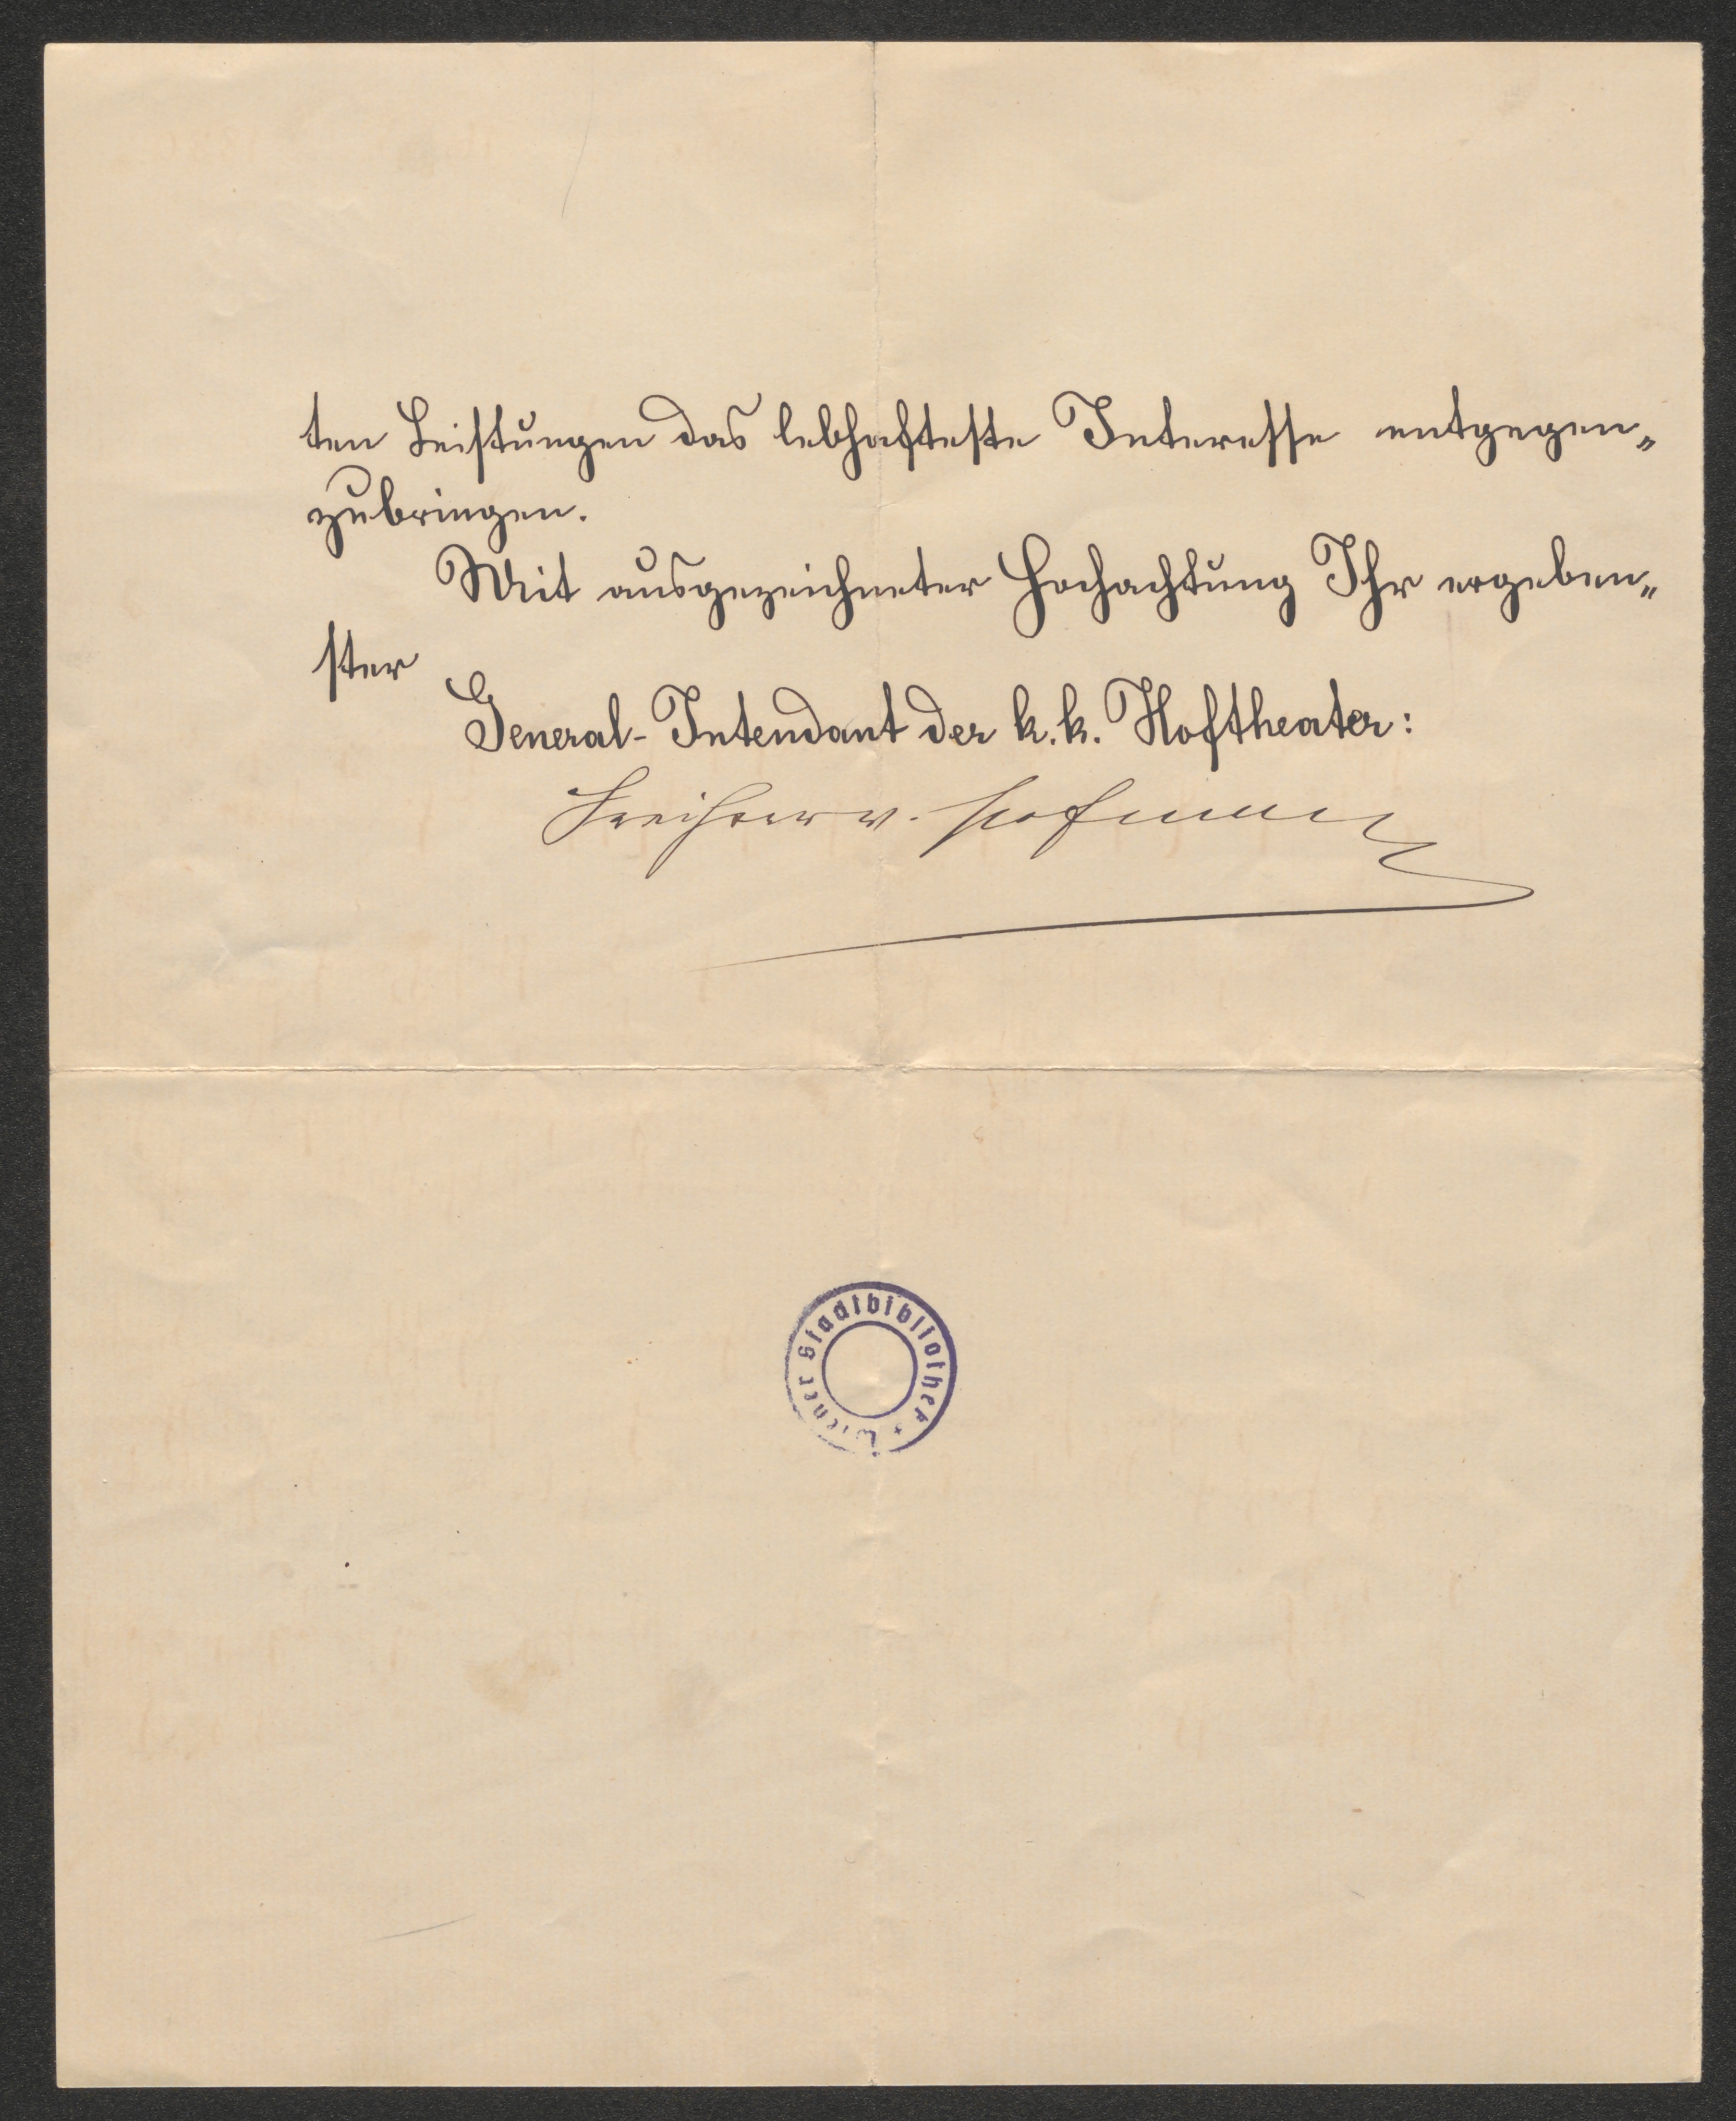 ten Leistungen das lebhafteste Interesse entgegen„
zubringen.
Mit ausgezeichneter Hochachtung Ihr ergeben„
ster
General-Intendant der k. k. Hoftheater:
Freiherr v. Hofmann
Wiener Stadtbibliothek +